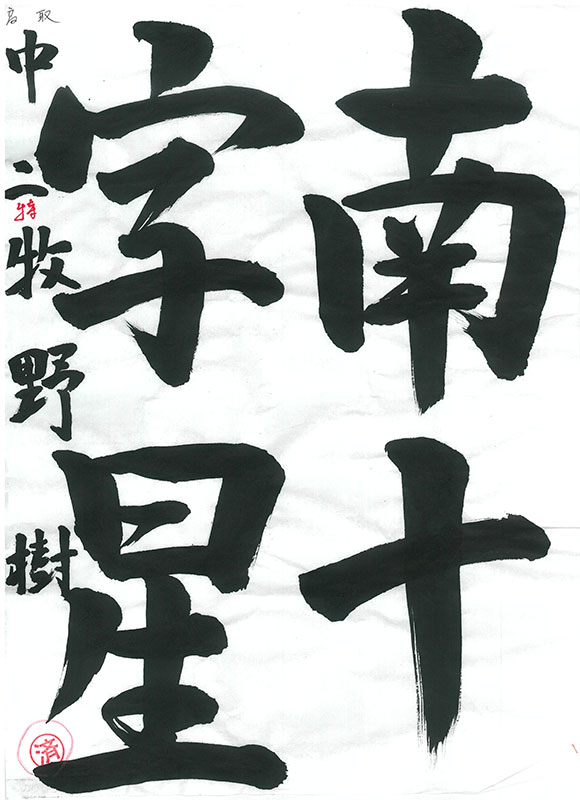 南十
字星
中二牧野樹
高取
特
済